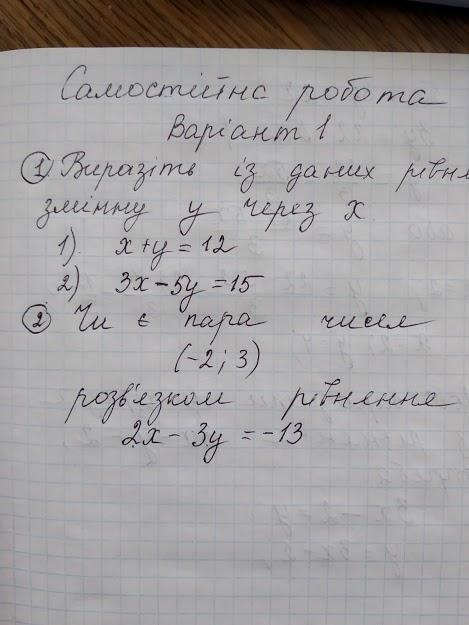 Самостійна робота
Варіант 1
① Виразіть із даних рівня
змінну у через х
1). x+y=12
2) 3x-5y=15
② Чи є пара чисел
(-2; 3)
розв'язком рівняння
2x-3y=-13